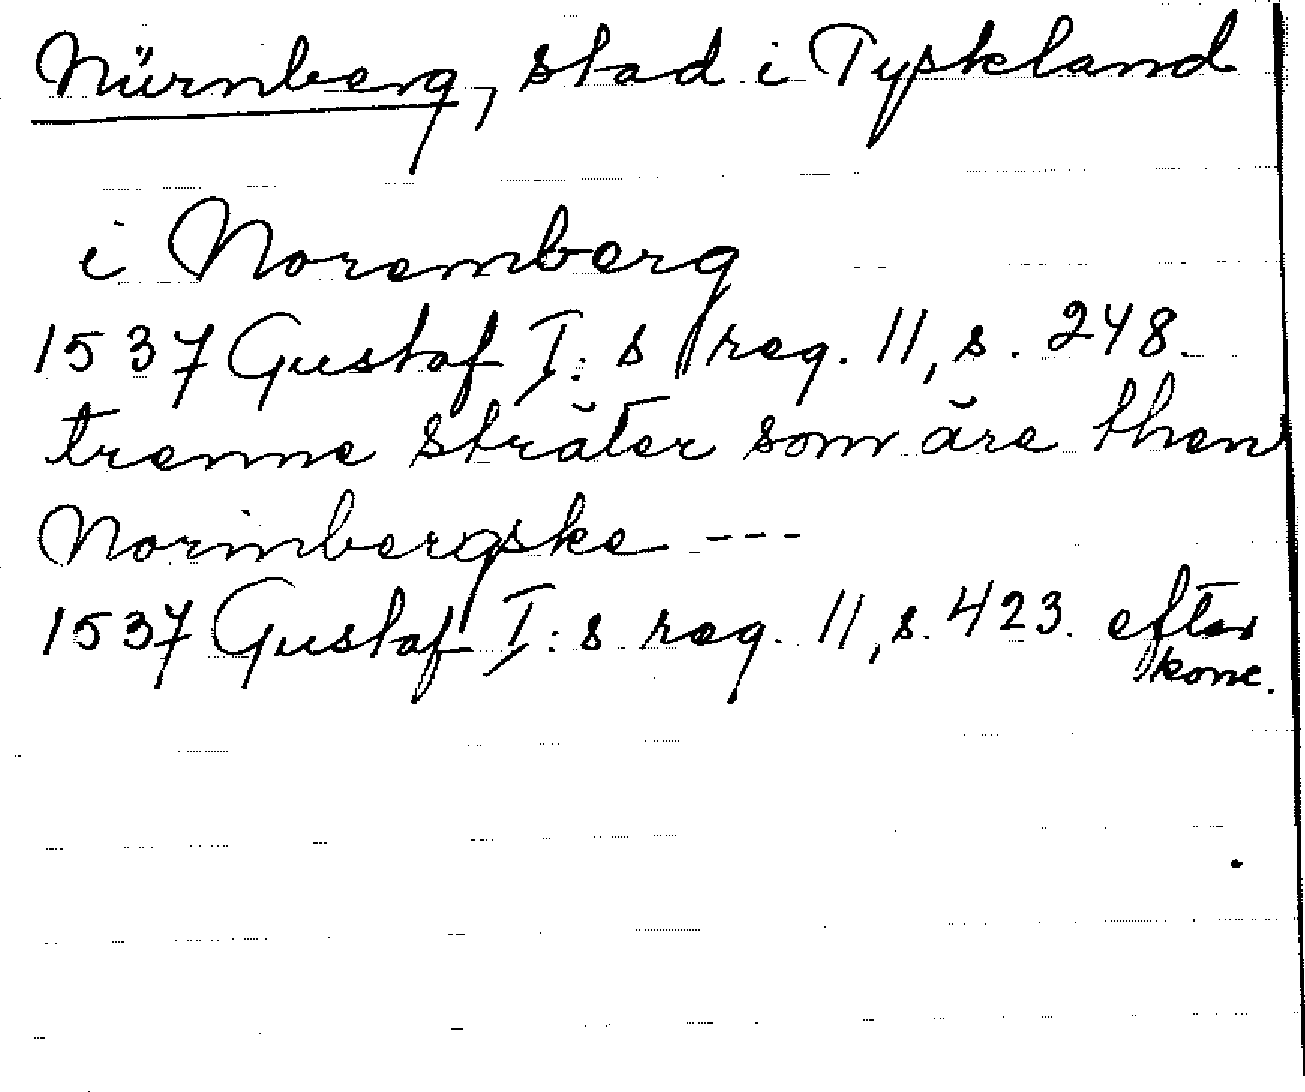 Nürnberg, stad i Tyskland
i Noremberg
1537 Gustaf I:s reg. 11, s. 248.
trenne sträter som äre then
Norimbergske ---
1537 Gustaf I:s reg. 11, s. 423. efter
konc.